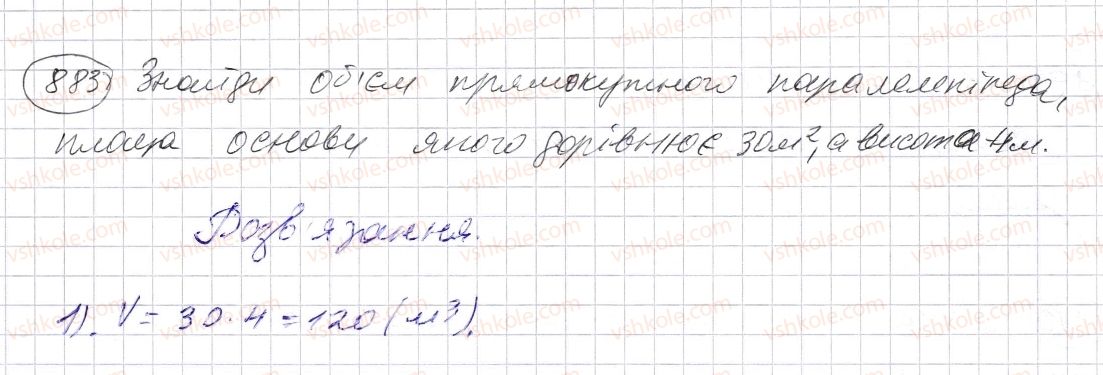 883) Знайди об'єм прямокутного паралелепіпеда,
площа основи якого дорівнює 30м², а висота 4м.
Розв'язання.
1). V = 30 · 4 = 120 (м³).